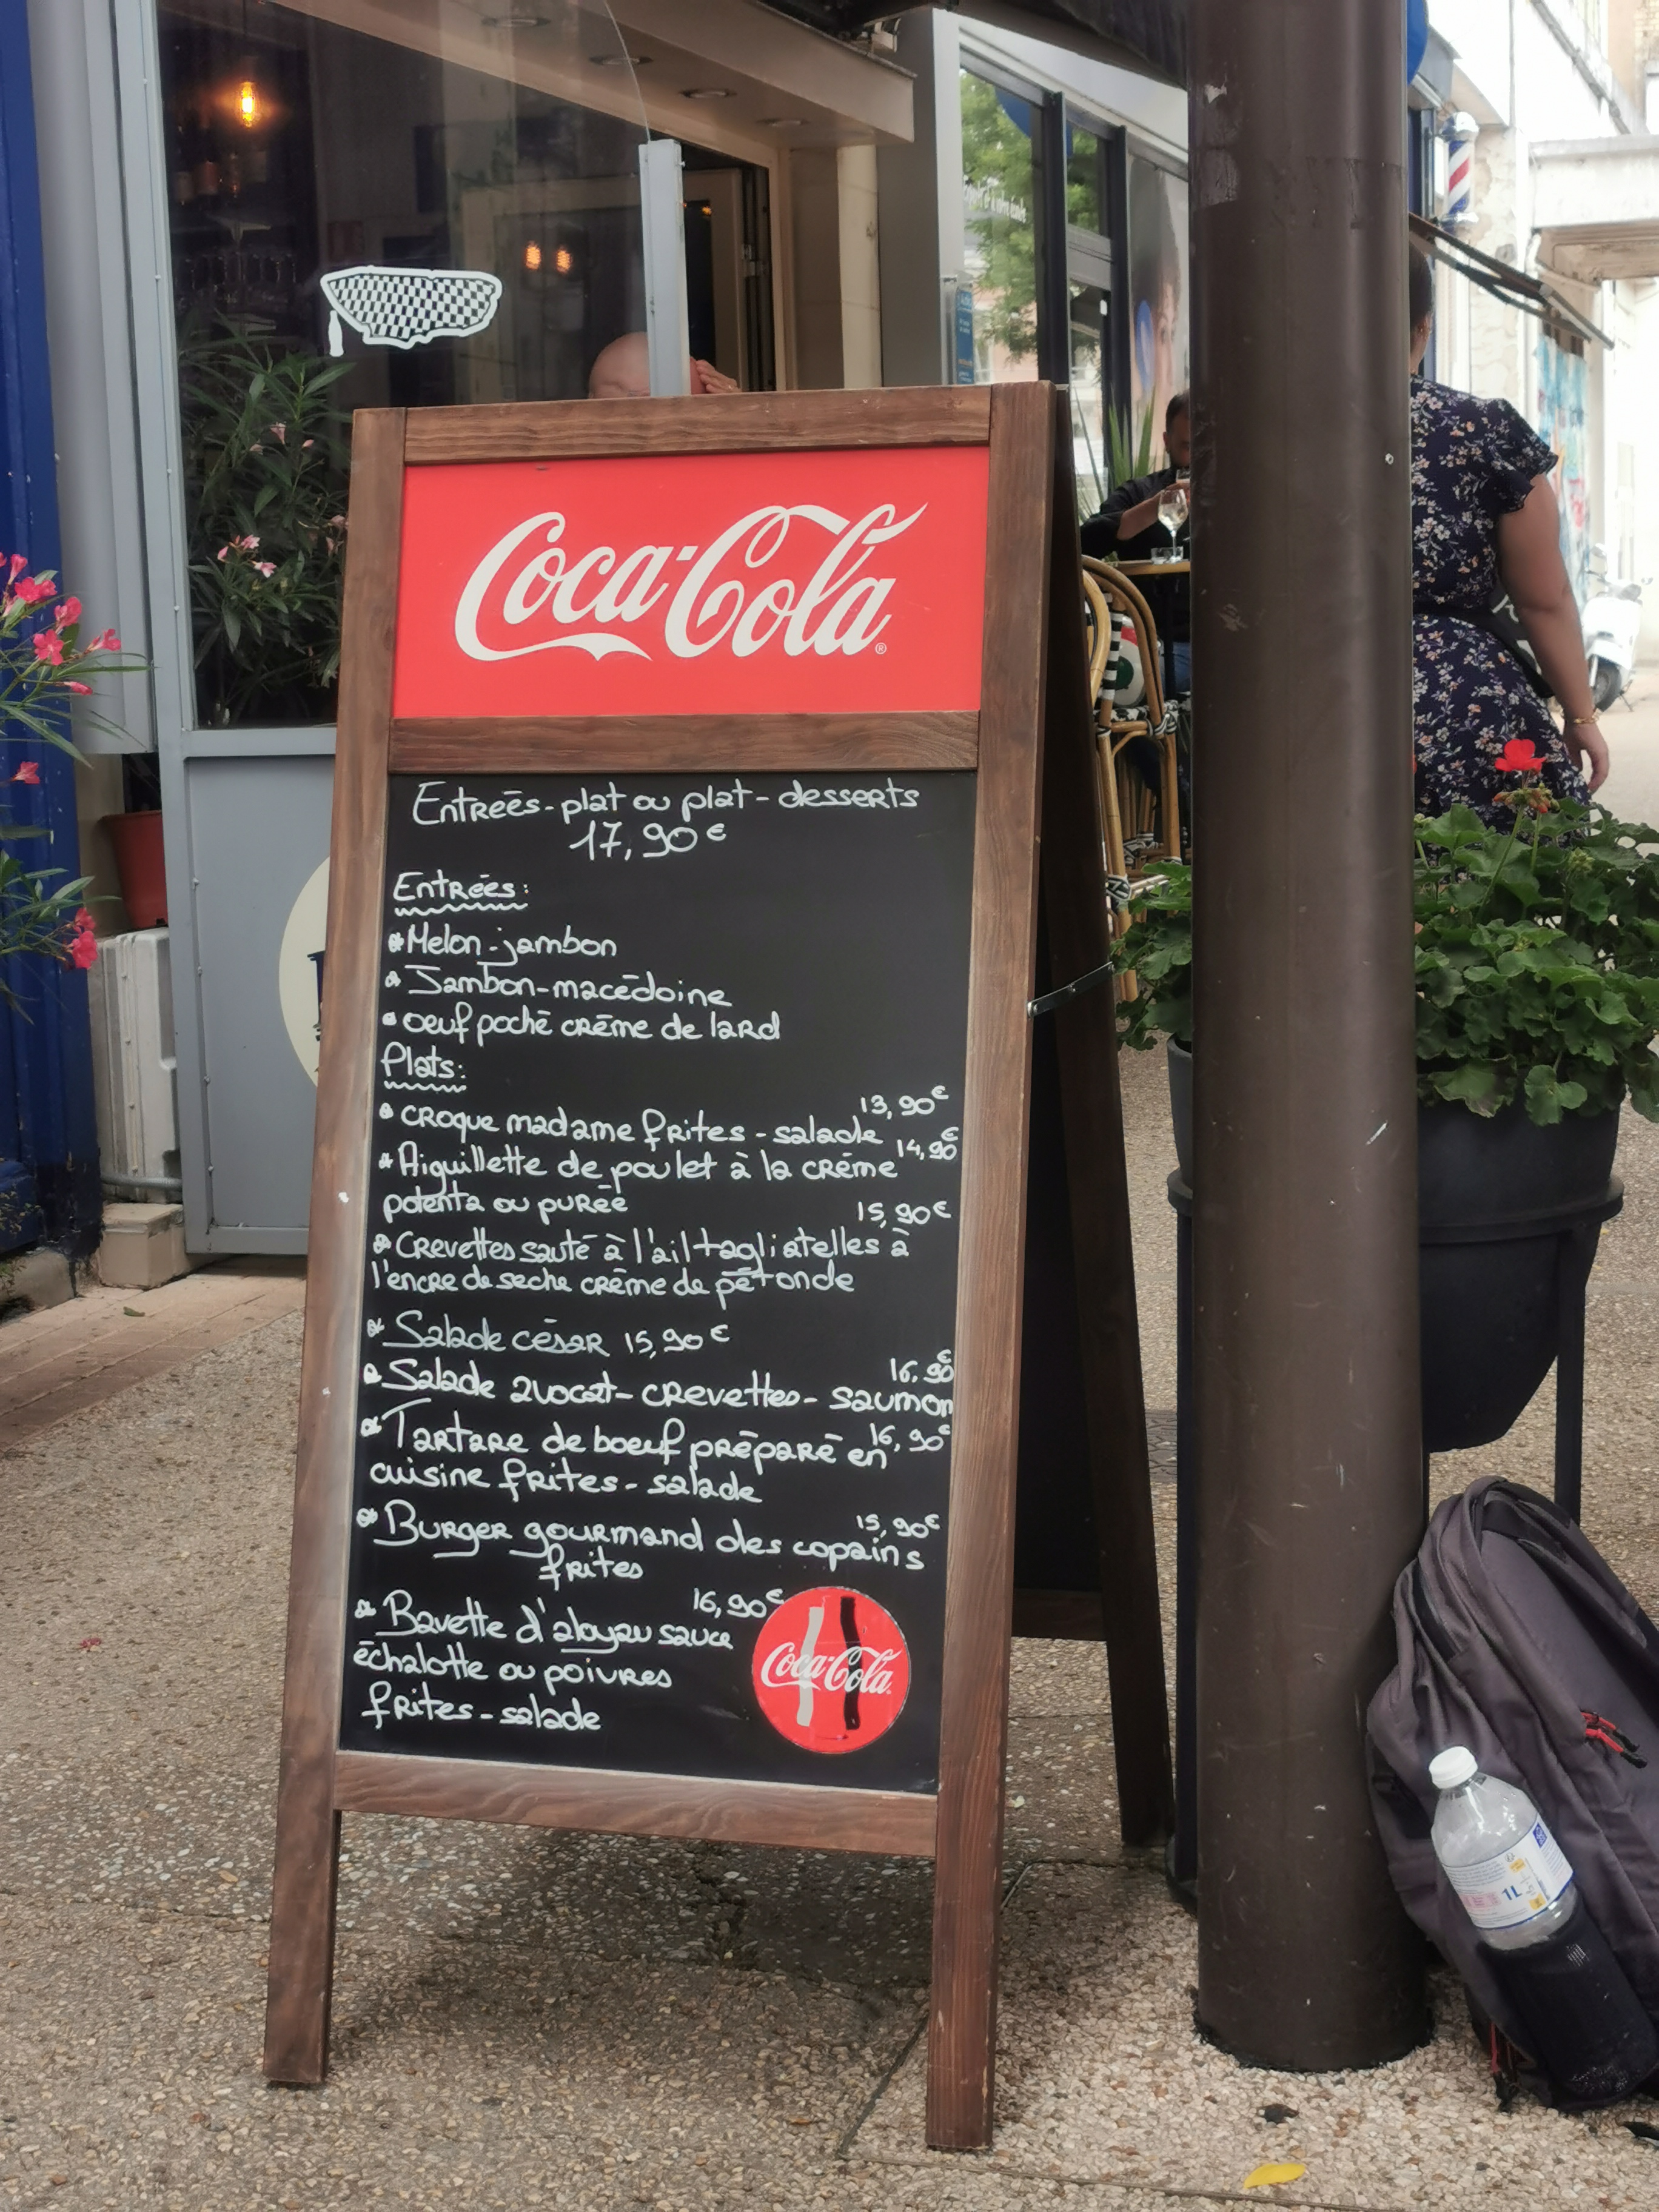 Coca-Cola®
Entreés-plat ou plat-desserts
17,90€
Entrées:
Melon-jambon
Jambon-macédoine
oeuf poché créme de lard
Plats:
13,90€
croque madame frites-salade
14,90€
Aiguillette de poulet à la créme
potenta ou purée
15,90€
Crevettes sauté à l'ail tagliatelles à
l'encre de seche crême de pétonde
Salade césar 15,90€
16,90€
Salade avocat-crevettes-saumon
16,90€
Tartare de boeuf préparé en
cuisine frites-salade
15,90€
Burger gourmand des copains
frites
16,90€
Bavette d'aloyau sauce
échalotte ou poivres
frites-salade
Coca-Cola
1L